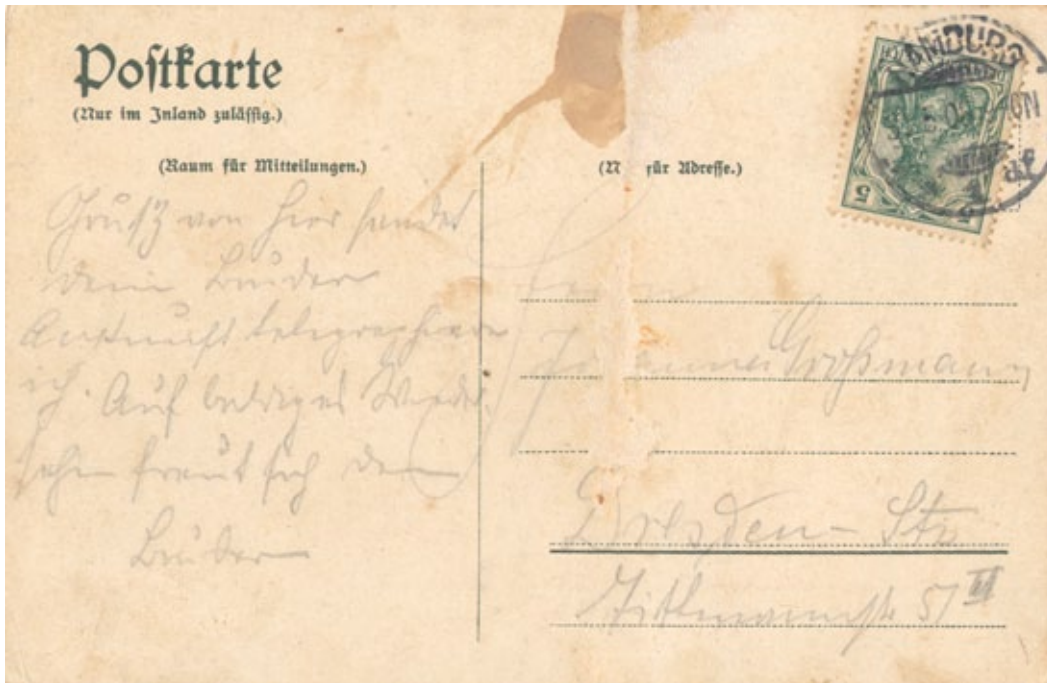 Postkarte
(Nur im Inland zulässig.)
(Raum für Mitteilungen.)
Gruß von hier sendet
dein Bruder
Ankunft telegraphiere
ich. Auf baldiges Wieder
sehn freut sich dein
Bruder
für Adresse.)
AMBURG
5 5
Großmann
Dresden-Str
51 III